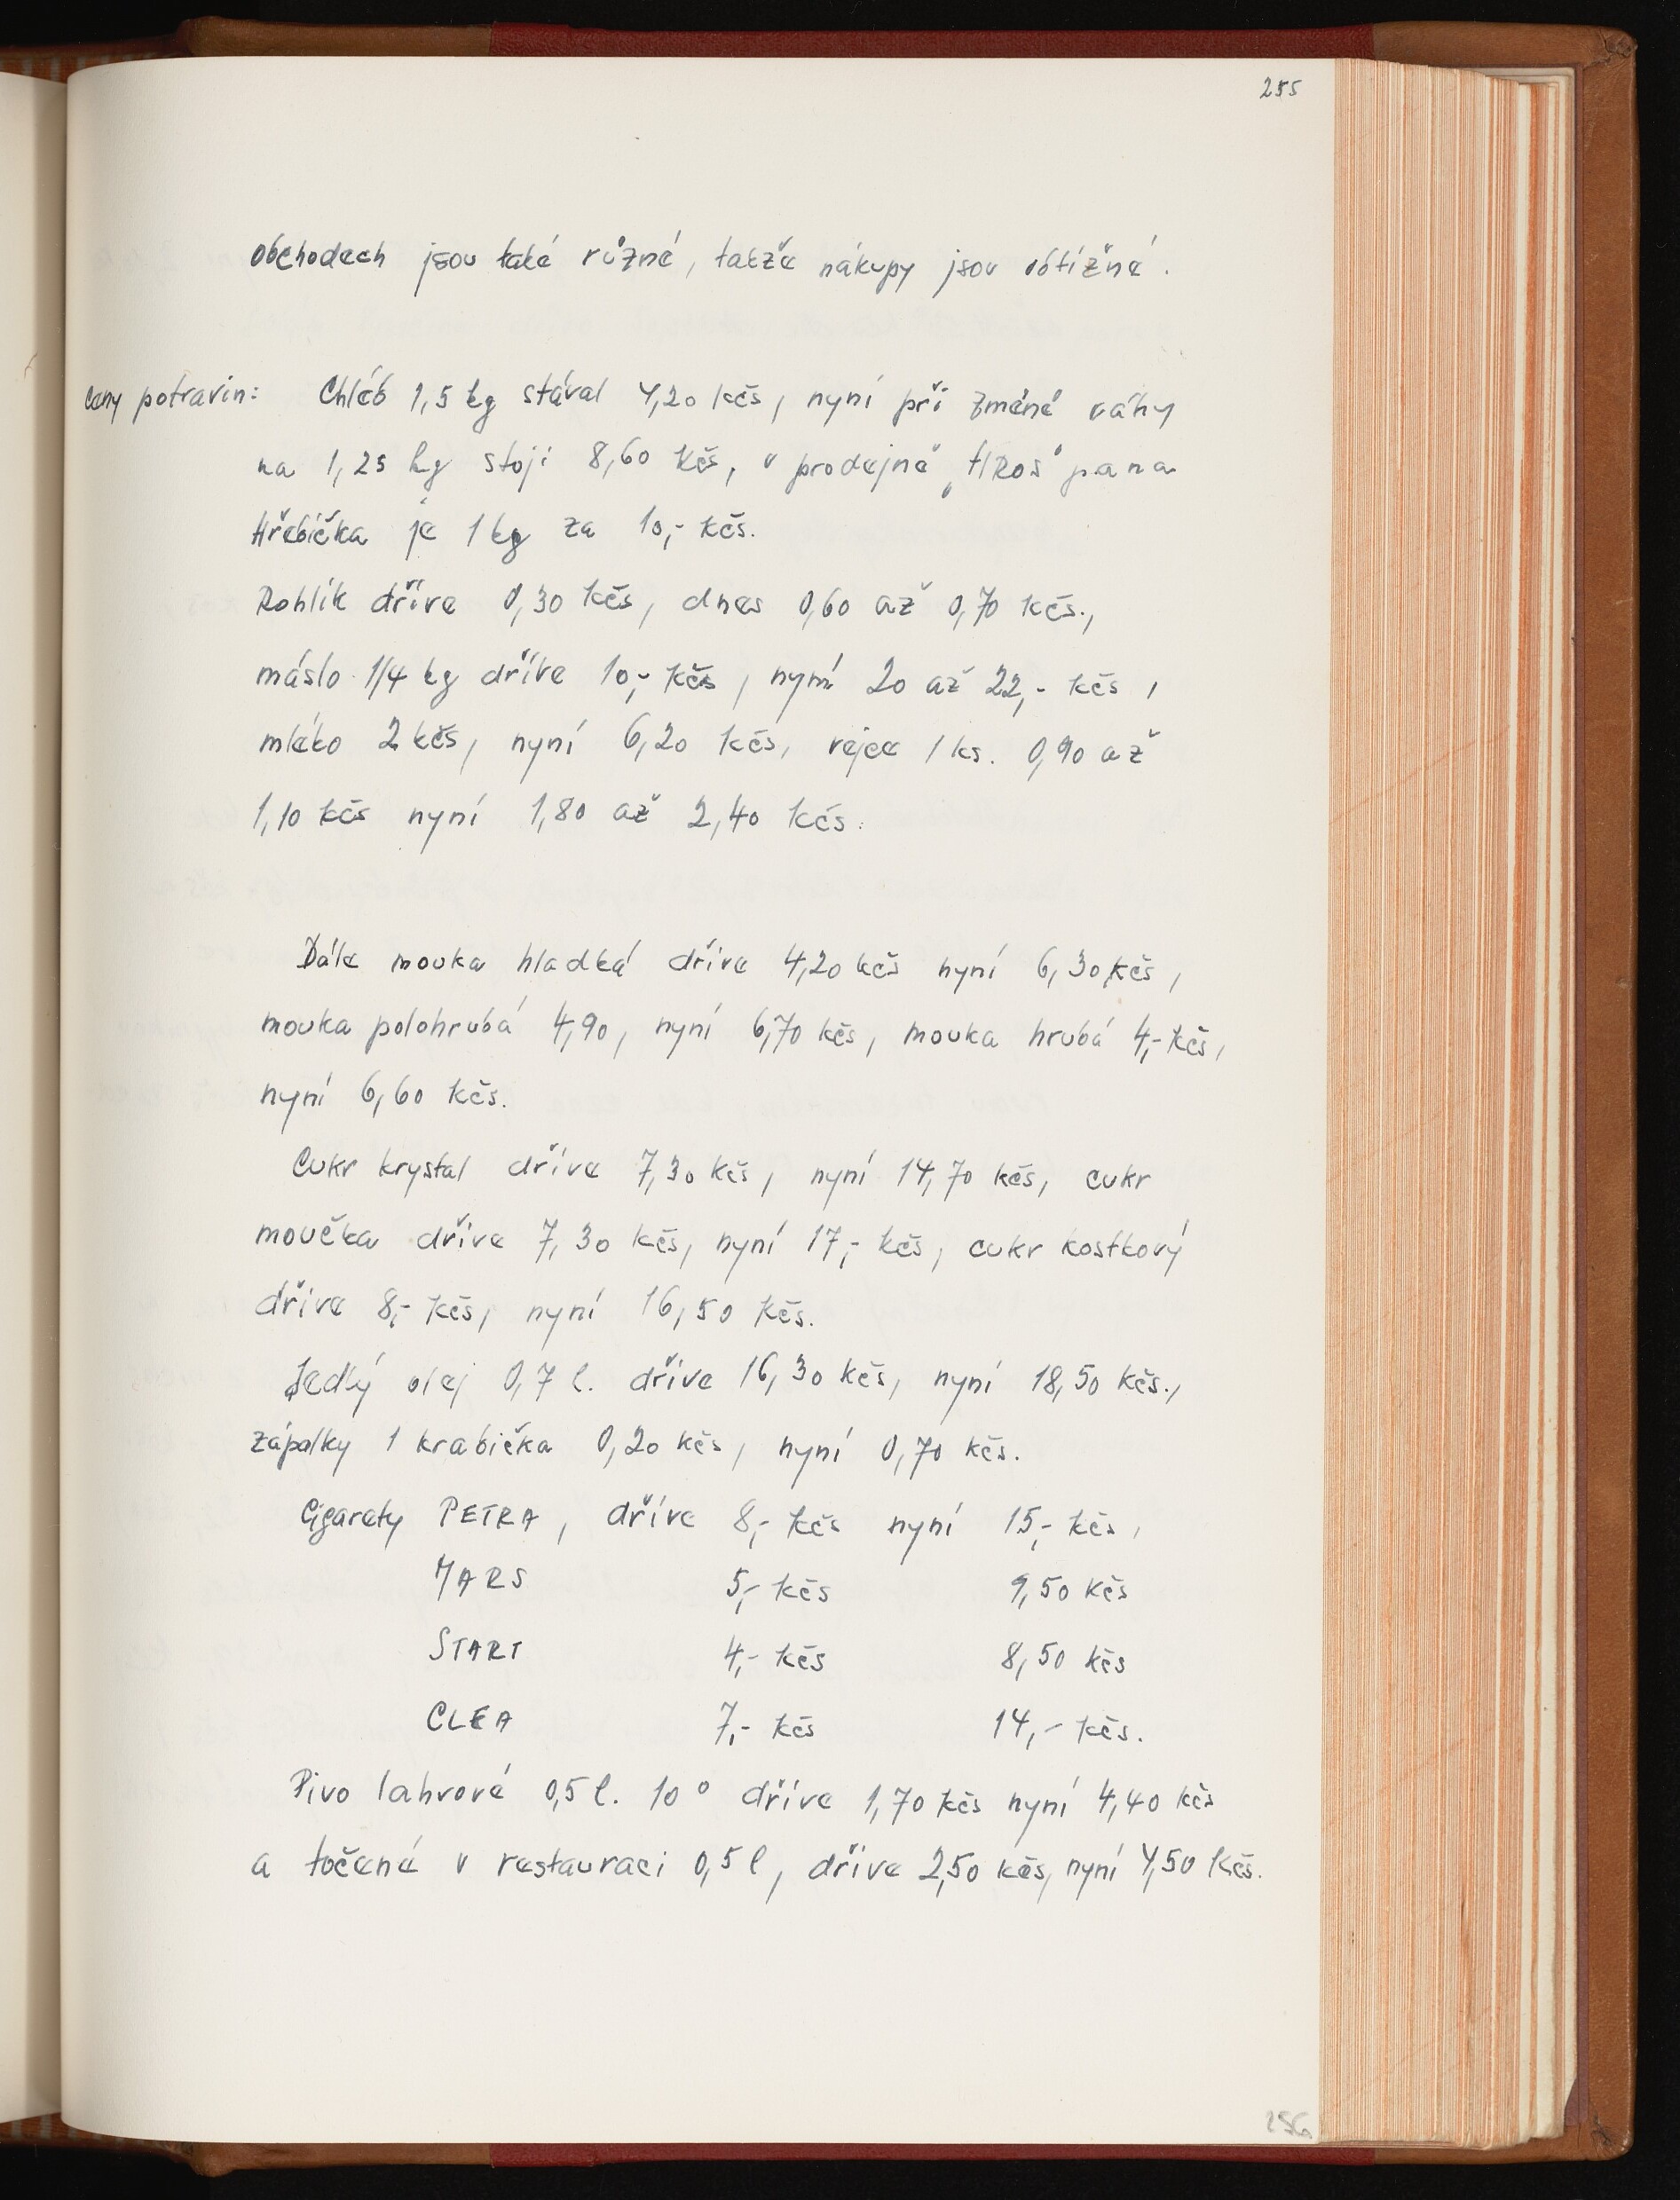 255
obchodech jsou také různé, takže nákupy jsou obtížné.
Ceny potravin: Chléb 1,5 kg stával 4,20 kčs, nyní při změně váhy
na 1,25 kg stojí 8,60 kčs, v prodejně „HROS" pana
Hřebíčka je 1 kg za 10,- kčs.
Rohlík dříve 0,30 kčs, dnes 0,60 až 0,70 kčs.,
máslo 1/4 kg dříve 10,- kčs, nyní 20 až 22,- kčs,
mléko 2 kčs, nyní 6,20 kčs, vejce 1 ks. 0,90 až
1,10 kčs nyní 1,80 až 2,40 kčs.
Dále mouka hladká dříve 4,20 kčs nyní 6,30 kčs,
mouka polohrubá 4,90, nyní 6,70 kčs, mouka hrubá 4,- kčs,
nyní 6,60 kčs.
Cukr krystal dříve 7,30 kčs, nyní 14,70 kčs, cukr
moučka dříve 7,30 kčs, nyní 17,- kčs, cukr kostkový
dříve 8,- kčs, nyní 16,50 kčs.
Jedlý olej 0,7 l. dříve 16,30 kčs, nyní 18,50 kčs.,
zápalky 1 krabička 0,20 kčs, nyní 0,70 kčs.
Cigarety PETRA, dříve 8,- kčs nyní 15,- kčs,
MARS 5,- kčs 9,50 kčs
START 4,- kčs 8,50 kčs
CLEA 7,- kčs 14,- kčs.
Pivo lahvové 0,5 l. 10° dříve 1,70 kčs nyní 4,40 kčs
a točené v restauraci 0,5 l, dříve 2,50 kčs, nyní 4,50 kčs.
256